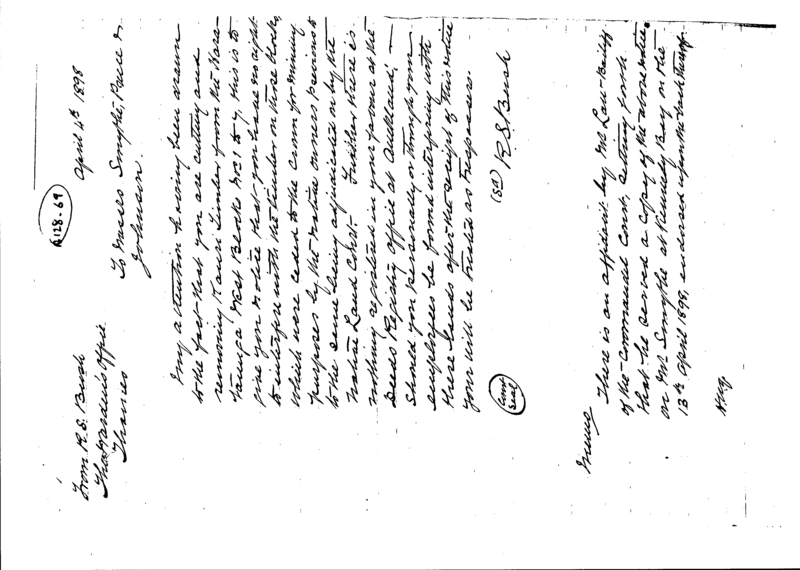 A128.69
From R. S. Bush
The Warden's Office
Thames
April 4th 1898
To Messrs Smythe, Paice &
Johnson.
My attention having been drawn
to the fact that you are cutting and
removing Kauri Timber from the Hare-
taunga West Blocks Nos 1 to 7, this is to
give you notice that you have no right
to interfere with the timber on those blocks,
which were ceded to the crown for mining
purposes by the native owners previous to
the same being adjudicated on by the
Native Land Court. Further there is
nothing registered in your favour at the
Deeds Registry Office at Auckland, —
Should you personally or through your
employees be found interfering with
these lands after the receipt of this notice
you will be treated as trespassers.
(sd) R. S. Bush
There is an affidavit by Mr Law Bailiff
of the Court, setting forth
that he served a copy of the above notice
on Mr Smythe at Kennedy Bay on the
13th April 1898, endorsed upon the back thereof.